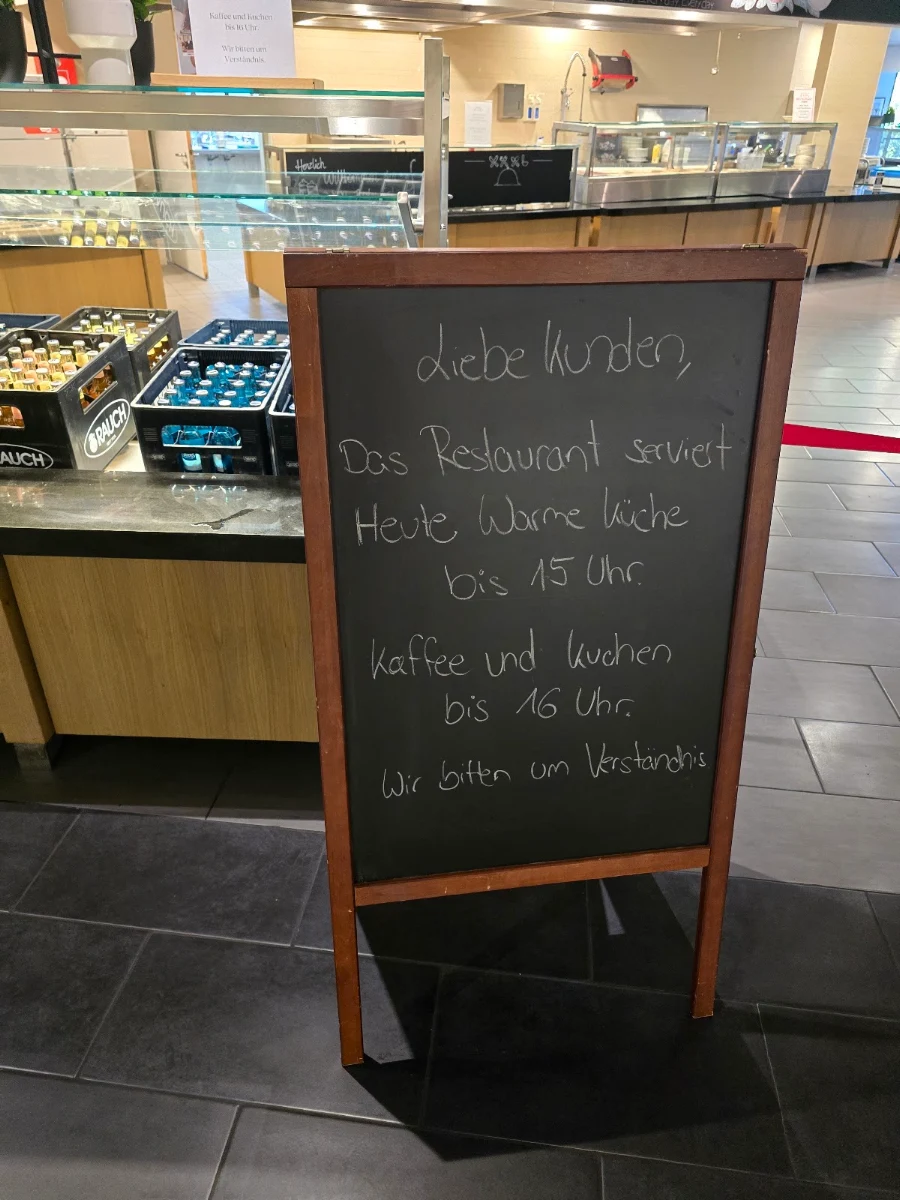 Kaffee und Kuchen
bis 16 Uhr.
Wir bitten um
Verständnis.
Herzlich
RAUCH
RAUCH
Liebe Kunden,
Das Restaurant serviert
Heute Warme Küche
bis 15 Uhr.
Kaffee und Kuchen
bis 16 Uhr.
Wir bitten um Verständnis